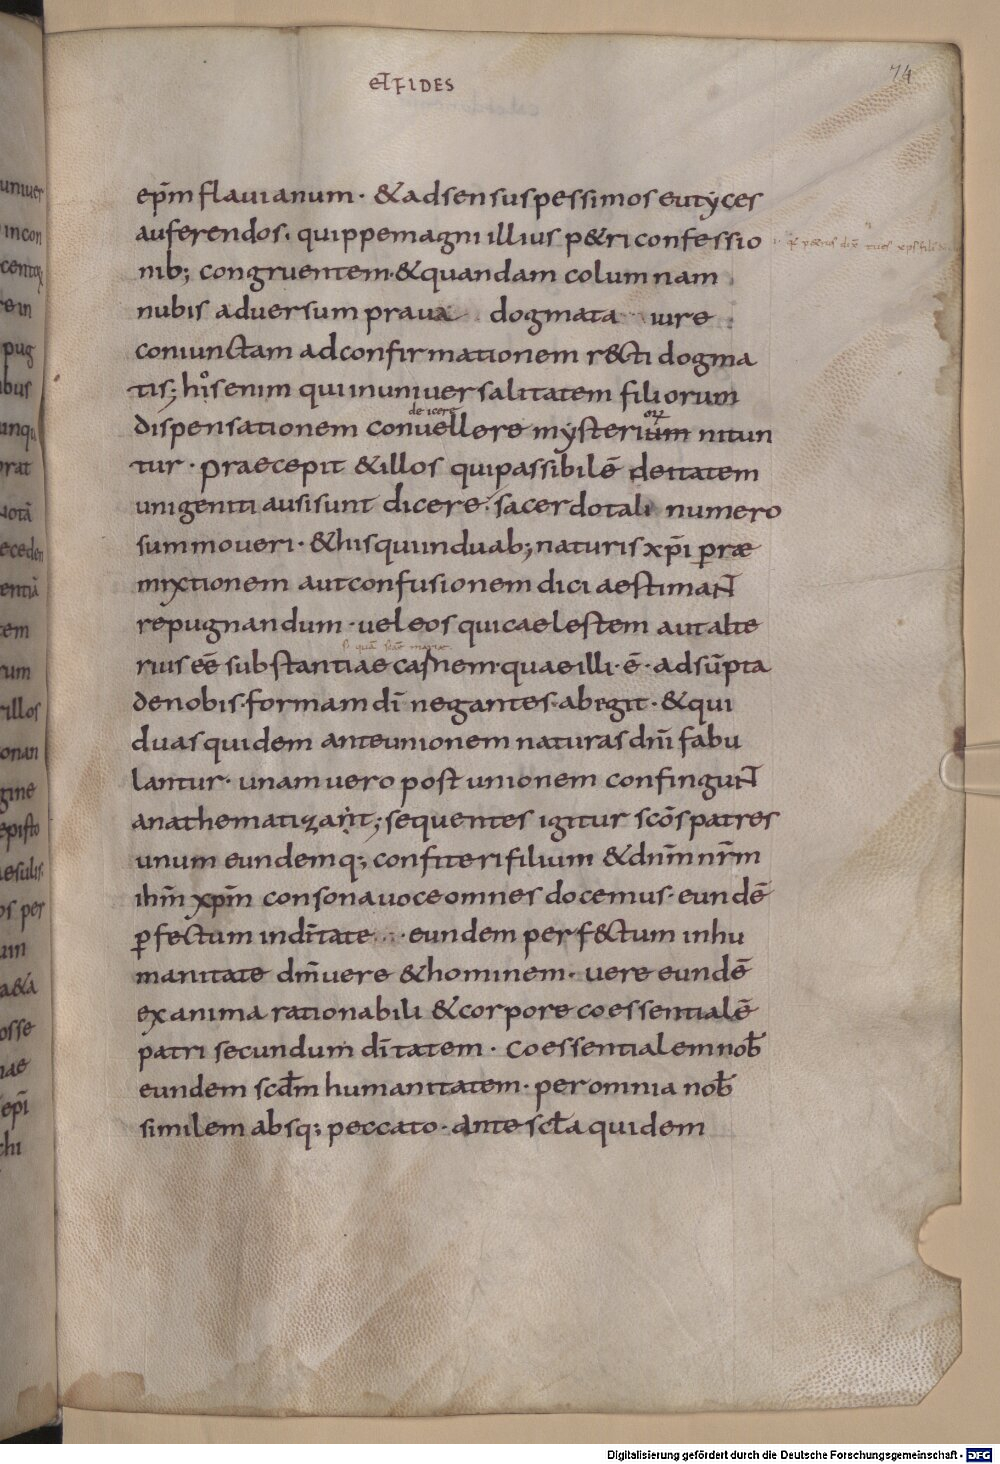 ET FIDES
74
ep̄m flauianum · & ad sensus pessimos eutyces
auferendos · quippe magni illius p&ri confessio
nib; congruentem · & quandam columnam
nubis aduersum praua dogmata iure
coniunctam ad confirmationem r&cti dogma
tis; his enim qui in uniuersalitatem filiorum
dispensationem conuellere mysterium nitun
tur · praecepit & illos qui passibilē deitatem
unigeniti ausi sunt dicere · sacerdotali numero
summoueri · & his qui in duab; naturis xp̄i præ
mixtionem aut confusionem dici aestimaNT
repugnandum · uel eos qui caelestem aut alte
rius eē substantiae carnem · quae illi · ē · adsūpta
de nobis · formam dī negantes · abegit · & qui
duas quidem ante unionem naturas dn̄i fabu
lantur · unam uero post unionem confinguNT
anathematizant; sequentes igitur scōs patres
unum eundemq; confiteri filium & dn̄m nr̄m
ih̄m xp̄m consona uoce omnes docemus · eundē
p̄fectum in dītate · eundem perf&ctum in hu
manitate dm̄ uere & hominem · uere eundē
ex anima rationabili & corpore coessentialē
patri secundum dītatem · coessentialem nob̄
eundem scd̄m humanitatem · per omnia nob̄
similem absq; peccato · ante sc̄la quidem
uniuer
incon
rem
pug
bus
rat
uotā
eceden
tem
rum
rillos
onan
gine
episto
esulis
os per
uin
a&a
osse
nae
ep̄i
chi
Digitalisierung gefördert durch die Deutsche Forschungsgemeinschaft - DFG